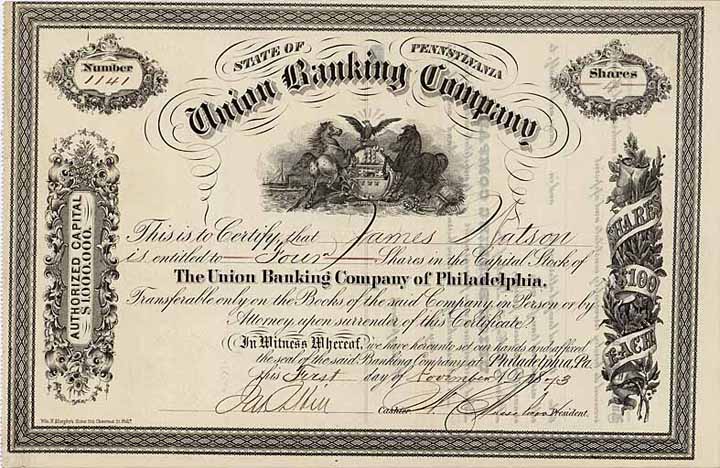 STATE OF PENNSYLVANIA
Number
1141
Shares
Union Banking Company
AUTHORIZED CAPITAL
$1,000,000.
SHARES
$100
EACH
This is to Certify that James Watson
is entitled to Four Shares in the Capital Stock of
The Union Banking Company of Philadelphia.
Transferable only on the Books of the said Company in Person or by
Attorney upon surrender of this Certificate.
In Witness Whereof, we have hereunto set our hands and affixed
the seal of the said Banking Company at Philadelphia, Pa.
this First day of November A.D. 1873
Cashier President.